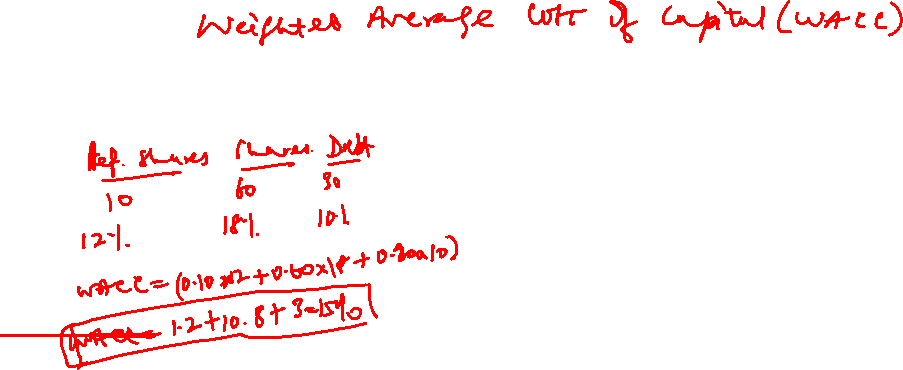 Weighted Average Cost Of Capital (WACC)
Pref. Shares Shares Debt
10 60 30
12%. 18%. 10%
WACC = (0.10x12 + 0.60x18 + 0.30x10)
WACC = 1.2+10.8+3=15%